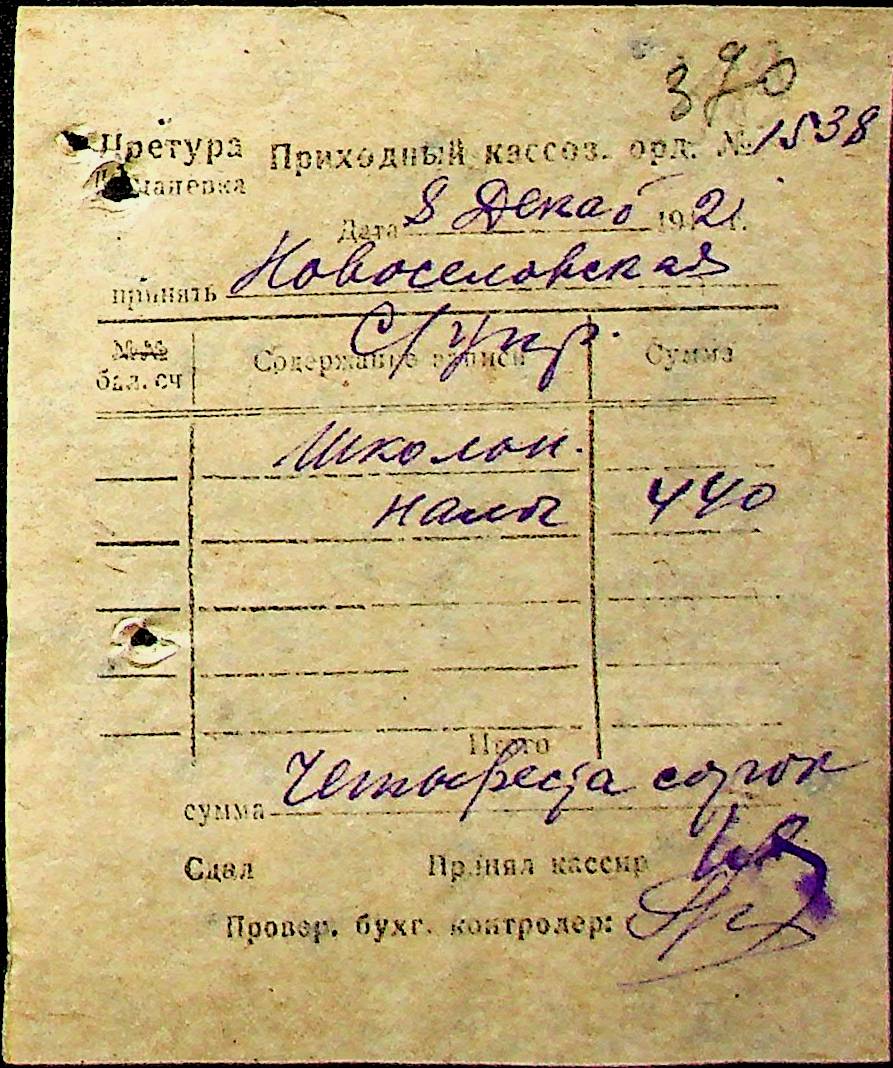 390
Претура Приходный кассов. орд. № 1538
Дата 8 Декаб 1942 г.
принять Новоселовская
С/упр.
№№ бал. сч Содержание записи Сумма
Школьн.
налог 440
Итого
сумма Четыреста сорок
Сдал Принял кассир
Провер. бухг. контролер: